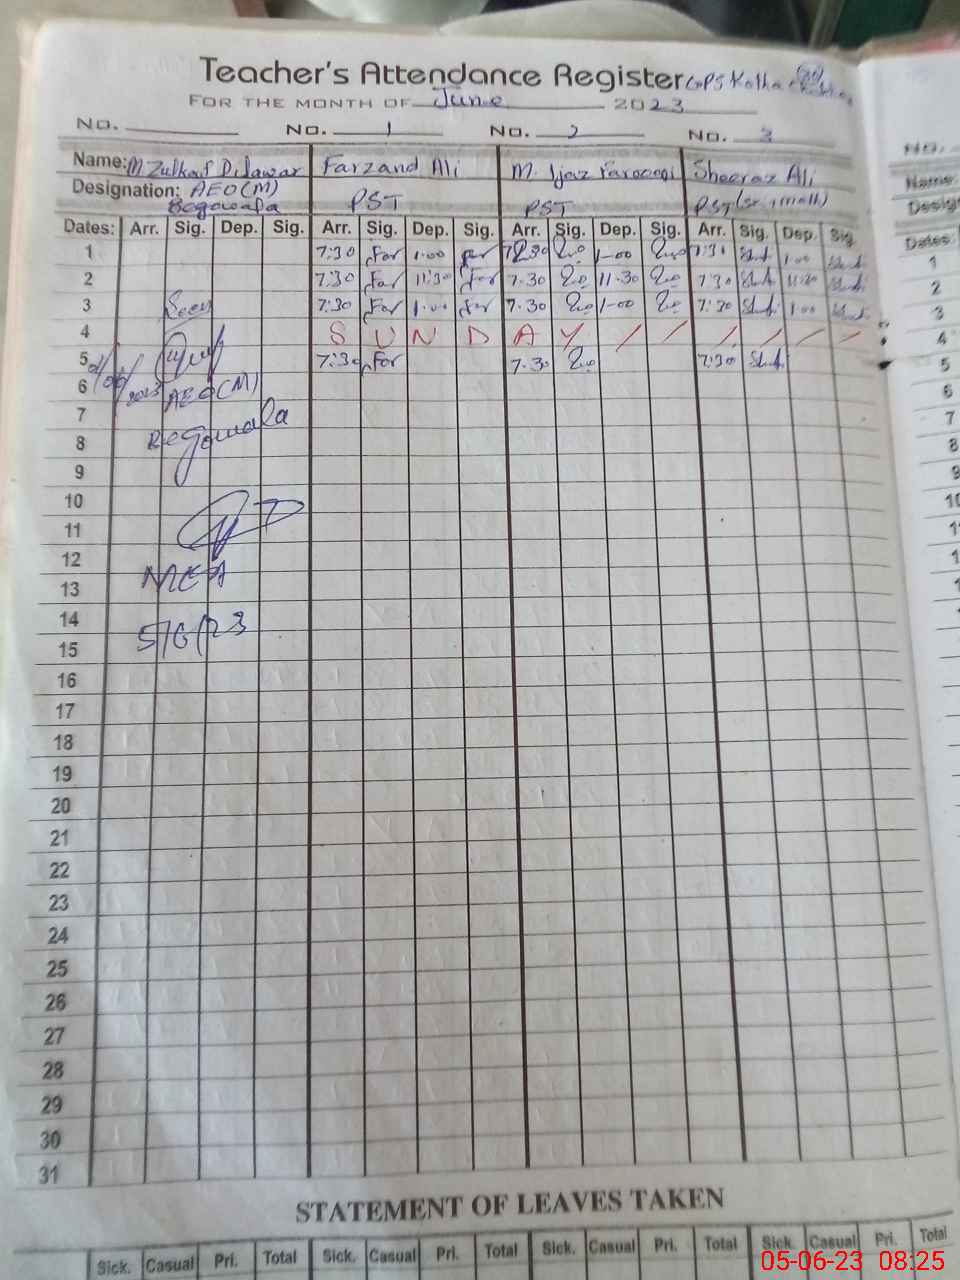 Teacher's Attendance Register GPS Kotha
FOR THE MONTH OF June 2023
No. No. 1 No. 2 No. 3
Name: M. Zulkaif Dilawar Farzand Ali M. Ijaz Farooqi Sheeraz Ali
Designation: AEO(M) PST PST PST
Begowala
Dates: Arr. Sig. Dep. Sig. Arr. Sig. Dep. Sig. Arr. Sig. Dep. Sig. Arr. Sig. Dep. Sig.
1 7:30 Far 1.00 far 7:30 1-00 7:30 1.00
2 7.30 Far 11:30 far 7.30 11.30 7.30 11.30
3 Seen 7:30 Far 1.00 far 7.30 1-00 7:30 1.00
4 S U N D A Y / / / / / /
5 7:30 Far 7.30 7:30
6 AEO(M)
7 Begowala
8
9
10
11
12
13 MEA
14
15 5/6/23
16
17
18
19
20
21
22
23
24
25
26
27
28
29
30
31
STATEMENT OF LEAVES TAKEN
Sick. Casual Pri. Total Sick. Casual Pri. Total Sick. Casual Pri. Total Sick. Casual Pri. Total
05-06-23 08:25
No.
Name:
Dates:
1
2
3
4
5
6
7
8